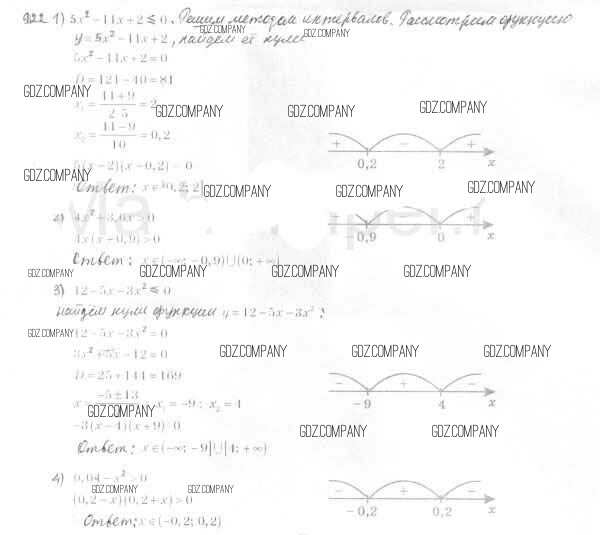 922 1) 5x² − 11x + 2 ≤ 0. Решим методом интервалов. Рассмотрим функцию
y = 5x² − 11x + 2, найдём её нули
GDZ.COMPANY
5x² − 11x + 2 = 0
D = 121 − 40 = 81
GDZ.COMPANY
x₁ = (11 + 9)/(2·5) = 2
GDZ.COMPANY GDZ.COMPANY GDZ.COMPANY
x₂ = (11 − 9)/10 = 0,2
+ − +
0,2 2 x
5(x − 2)(x − 0,2) = 0
GDZ.COMPANY
Ответ: x ∈ [0,2; 2]
GDZ.COMPANY GDZ.COMPANY GDZ.COMPANY
2) 4x² + 3,6x > 0
+ +
0,9 0 x
4x(x + 0,9) > 0
Ответ: x ∈ (−∞; −0,9) ∪ (0; +∞)
GDZ.COMPANY GDZ.COMPANY GDZ.COMPANY GDZ.COMPANY
3) 12 − 5x − 3x² ≤ 0
найдём нули функции y = 12 − 5x − 3x²:
GDZ.COMPANY 12 − 5x − 3x² = 0
3x² + 5x − 12 = 0
GDZ.COMPANY GDZ.COMPANY GDZ.COMPANY
D = 25 + 144 = 169
− + −
−9 4 x
−5 ± 13 x₁ = −9; x₂ = 4
GDZ.COMPANY
−3(x − 4)(x + 9) 0
GDZ.COMPANY GDZ.COMPANY
Ответ: x ∈ (−∞; −9] ∪ [4; +∞)
4) 0,04 − x² > 0
GDZ.COMPANY GDZ.COMPANY
− + −
−0,2 0,2 x
(0,2 − x)(0,2 + x) > 0
Ответ: x ∈ (−0,2; 0,2)